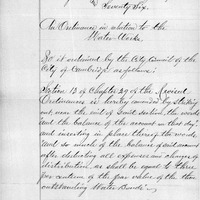 Seventy Six.
An Ordinance in relation to the
Water Works.
Be it ordained by the City Council of the
City of Cambridge as follows:
Section 13 of Chapter 29 of the Revised
Ordinances is hereby amended by striking
out, near the end of said section, the words
and the balance of the account in that day"
and inserting in place thereof the words
and so much of the balance of said account
after deducting all expenses and charges of
distribution, as shall be equal to three
per centum of the par value of the then
outstanding Water Bonds".